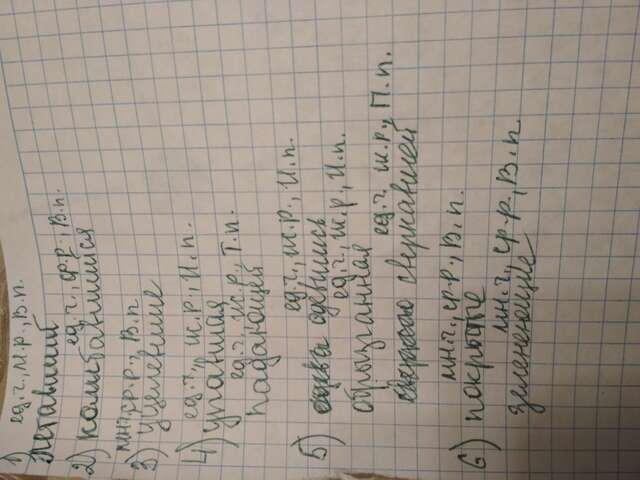 ед.ч., м.р., В.п.
1) летавший
ед.ч., ср.р., В.п.
2) колебавшийся
мн.ч., ср.р., В.п
3) уцелевшие
ед.ч., ж.р., И.п.
4) упавшая
ед.ч., ж.р., Т.п.
падающей
ед.ч., ж.р., И.п.
5)
ед.ч. ж.р, И.п.
обрызганная
ед.ч. ж.р., П.п.
сверкавшей
мн.ч., ср.р., В.п.
6) покрытые
мн.ч., ср.р., В.п.
зеленеющие